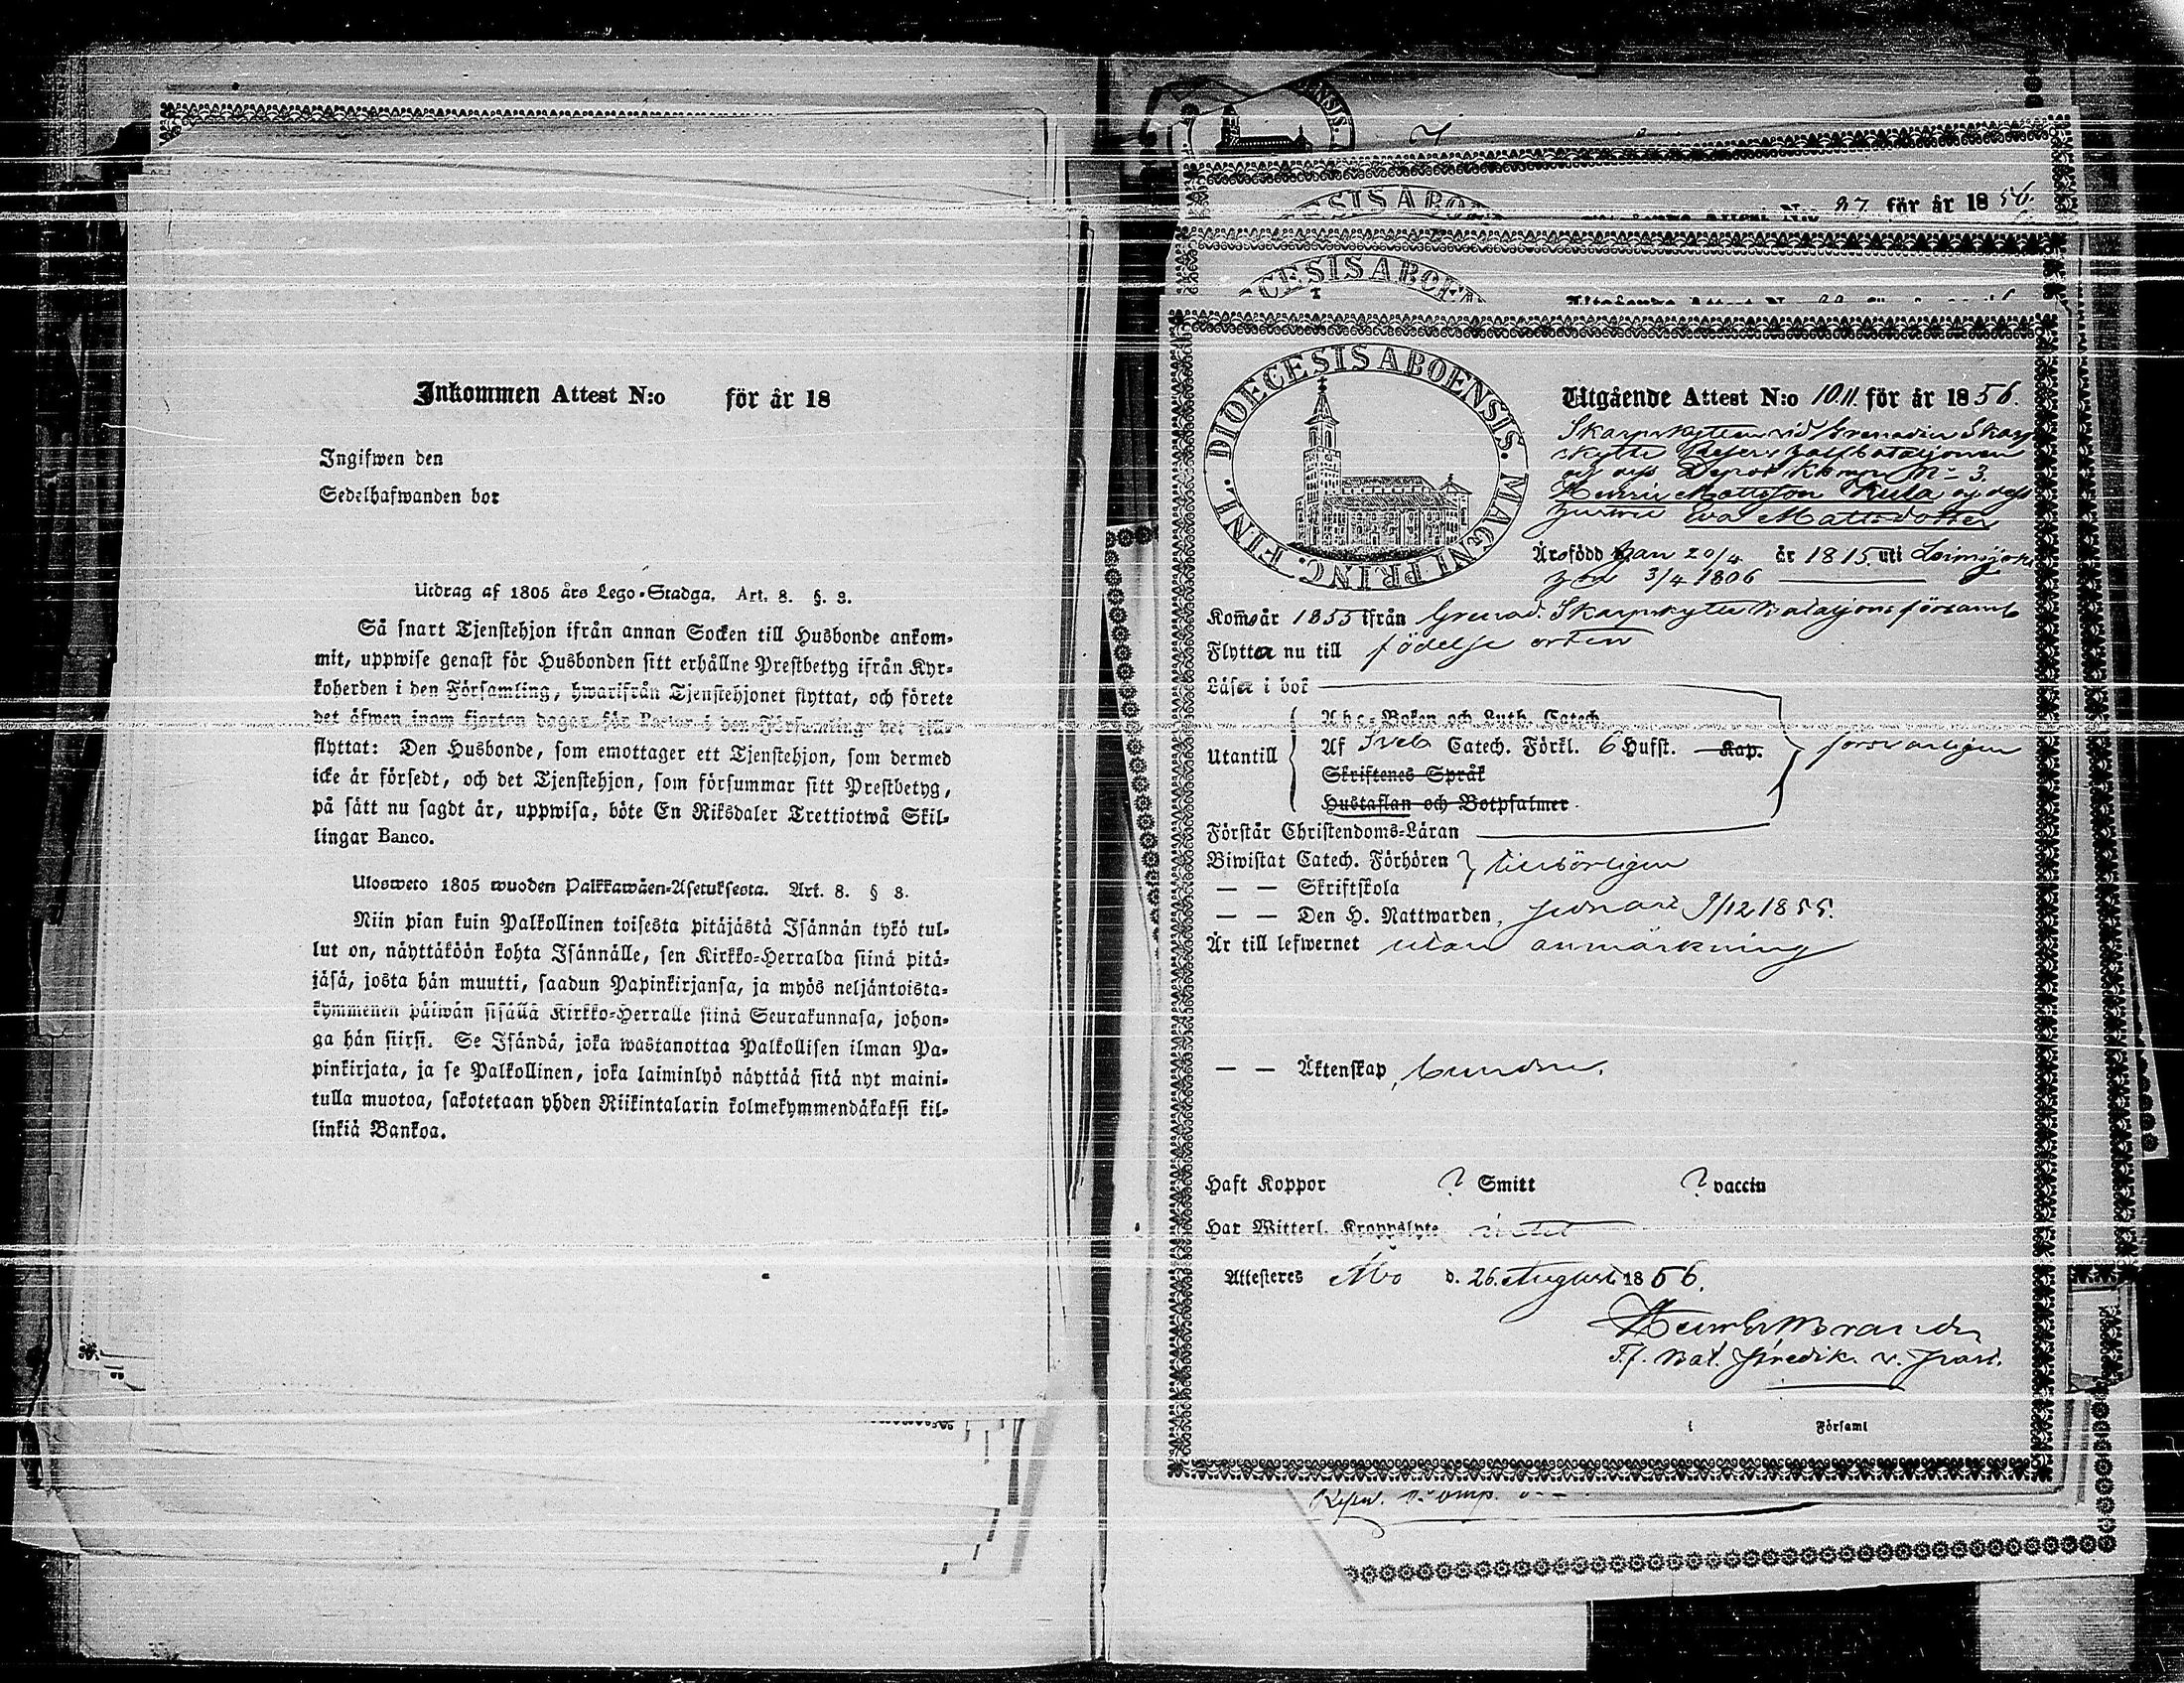 Inkommen Attest N:o för år 18
Ingifwen den
Sedelhafwanden bor
Utdrag af 1805 års Lego-Stadga. Art. 8. §. 8.
Så snart Tjenstehjon ifrån annan Socken till Husbonde ankom-
mit, uppwise genast för Husbonden sitt erhållne Prestbetyg ifrån Kyr-
koherden i den Församling, hwarifrån Tjenstehjonet flyttat, och förete
det äfwen inom fjorton dagar för Pastor i den Församling det till-
flyttat: Den Husbonde, som emottager ett Tjenstehjon, som dermed
icke är försedt, och det Tjenstehjon, som försummar sitt Prestbetyg,
på sätt nu sagdt är, uppwisa, böte En Riksdaler Trettiotwå Skil-
lingar Banco.
Ulosweto 1805 wuoden Palkkawäen-Asetuksesta. Art. 8. § 8.
Niin pian kuin Palkollinen toisesta pitäjästä Isännän tykö tul-
lut on, näyttäköön kohta Isännälle, sen Kirkko-Herralda siinä pitä-
jäsä, josta hän muutti, saadun Papinkirjansa, ja myös neljäntoista-
kymmenen päiwän sisällä Kirkko-Herralle siinä Seurakunnasa, johon-
ga hän siirsi. Se Isändä, joka wastanottaa Palkollisen ilman Pa-
pinkirjata, ja se Palkollinen, joka laiminlyö näyttää sitä nyt maini-
tulla muotoa, sakotetaan yhden Riikintalarin kolmekymmendäkaksi kil-
linkiä Bankoa.
N:o 97 för år 1856.
DIOECESIS ABOENSIS. MAGNI PRINC. FINL.
Utgående Attest N:o 1011. för år 1856.
Skarpskytten vid Grenadier Skarp
skytte Reserv bataljonen
och dess Depot Komp. N:o 3.
Mattsson Kula och dess
hustru Eva Mattsdotter
Är född han 20/4 år 1815 uti Loimijoki
hon 3/4 1806
Kom år 1855 ifrån Grenad. Skarpskytte Bataljons församl
Flytta nu till födelse orten
Läser i bok
Utantill
Abc-Boken och Luth. Catech.
Af Sveb Catech. Förkl. 6 Hufst. Kap.
försvarligen
Skriftenes Språk
Hustaflan och Botpsalmer
Förstår Christendoms-Läran
Biwistat Catech. Förhören tillbörligen
— — Skriftskola
— — Den H. Nattwarden, senast 9/12 1855.
Är till lefwernet utan anmärkning
— — Äktenskap, bunden.
Haft Koppor ? Smitt ? vaccin
Har Witterl. Kroppslyte intet
Attesteres Åbo d. 26. Augusti 1856.
T.f. Bat. Predik. v. Past.
i Församl